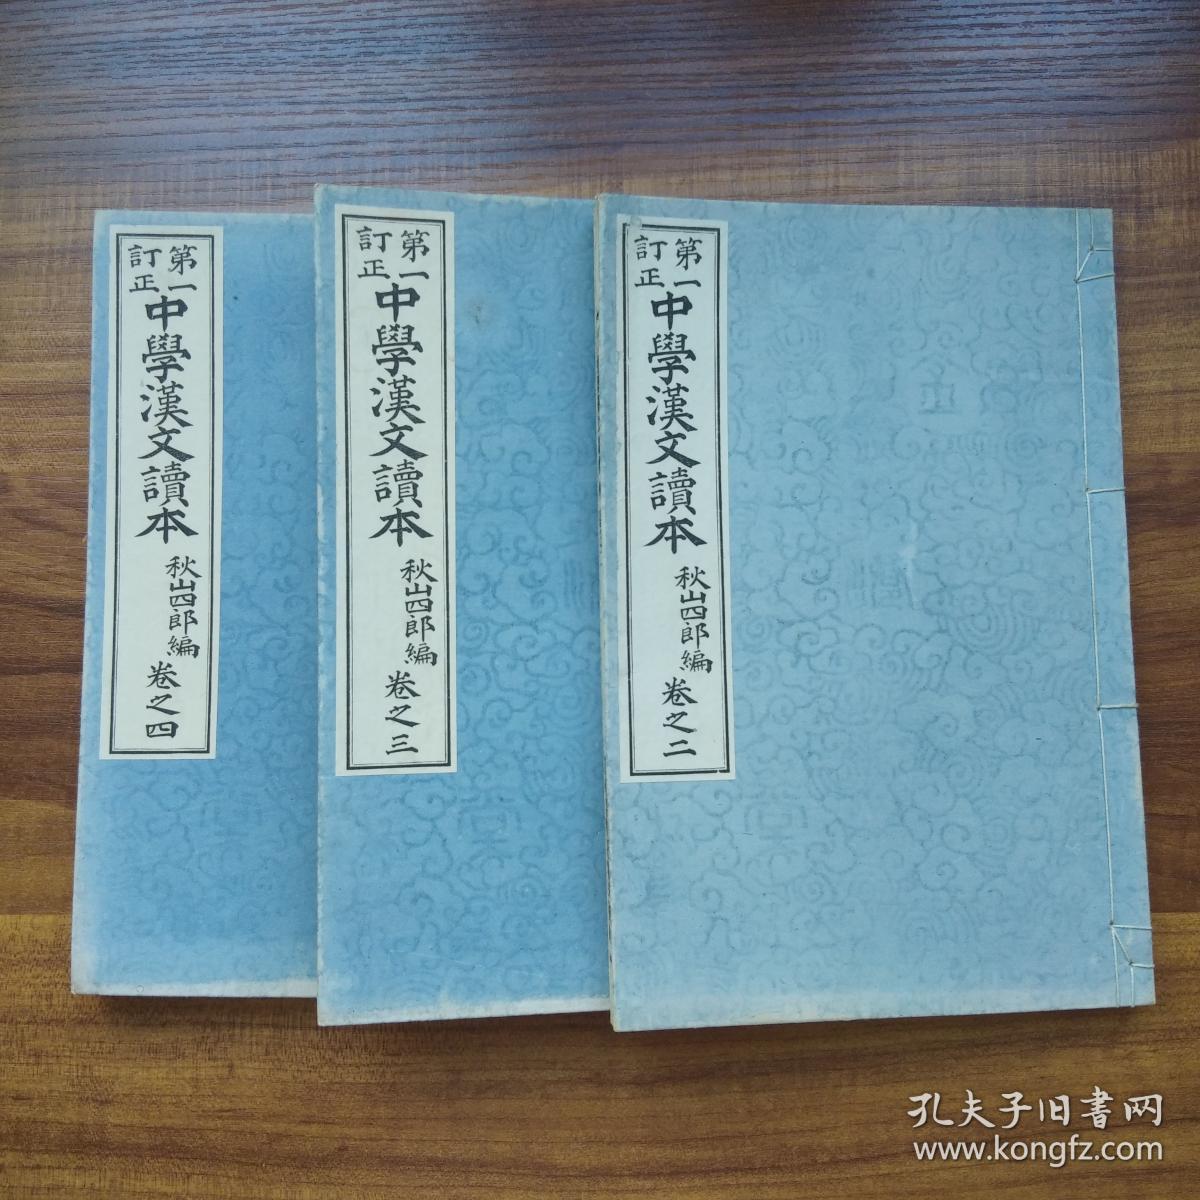 第一
訂正
中學漢文讀本
秋山四郎編
卷之四
第一
訂正
中學漢文讀本
秋山四郎編
卷之三
第一
訂正
中學漢文讀本
秋山四郎編
卷之二
孔夫子旧书网
www.kongfz.com